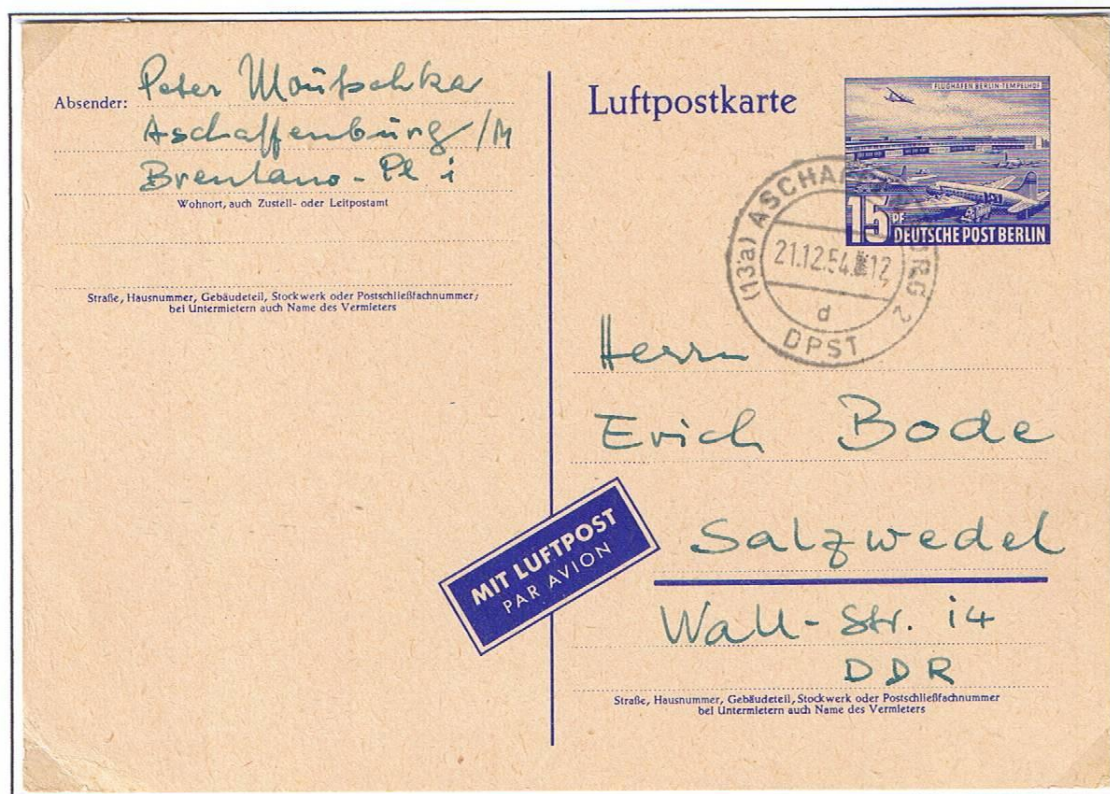 Absender: Peter
Aschaffenburg/M
Brentano-Pl i
Wohnort, auch Zustell- oder Leitpostamt
Straße, Hausnummer, Gebäudeteil, Stockwerk oder Postschließfachnummer;
bei Untermietern auch Name des Vermieters
Luftpostkarte
FLUGHAFEN BERLIN-TEMPELHOF
15 PF DEUTSCHE POST BERLIN
(13a) ASCHAFFENBURG 2
21.12.54. 12
d
DPST
Herrn
Erich Bode
Salzwedel
Wall-Str. i4
DDR
Straße, Hausnummer, Gebäudeteil, Stockwerk oder Postschließfachnummer
bei Untermietern auch Name des Vermieters
MIT LUFTPOST
PAR AVION